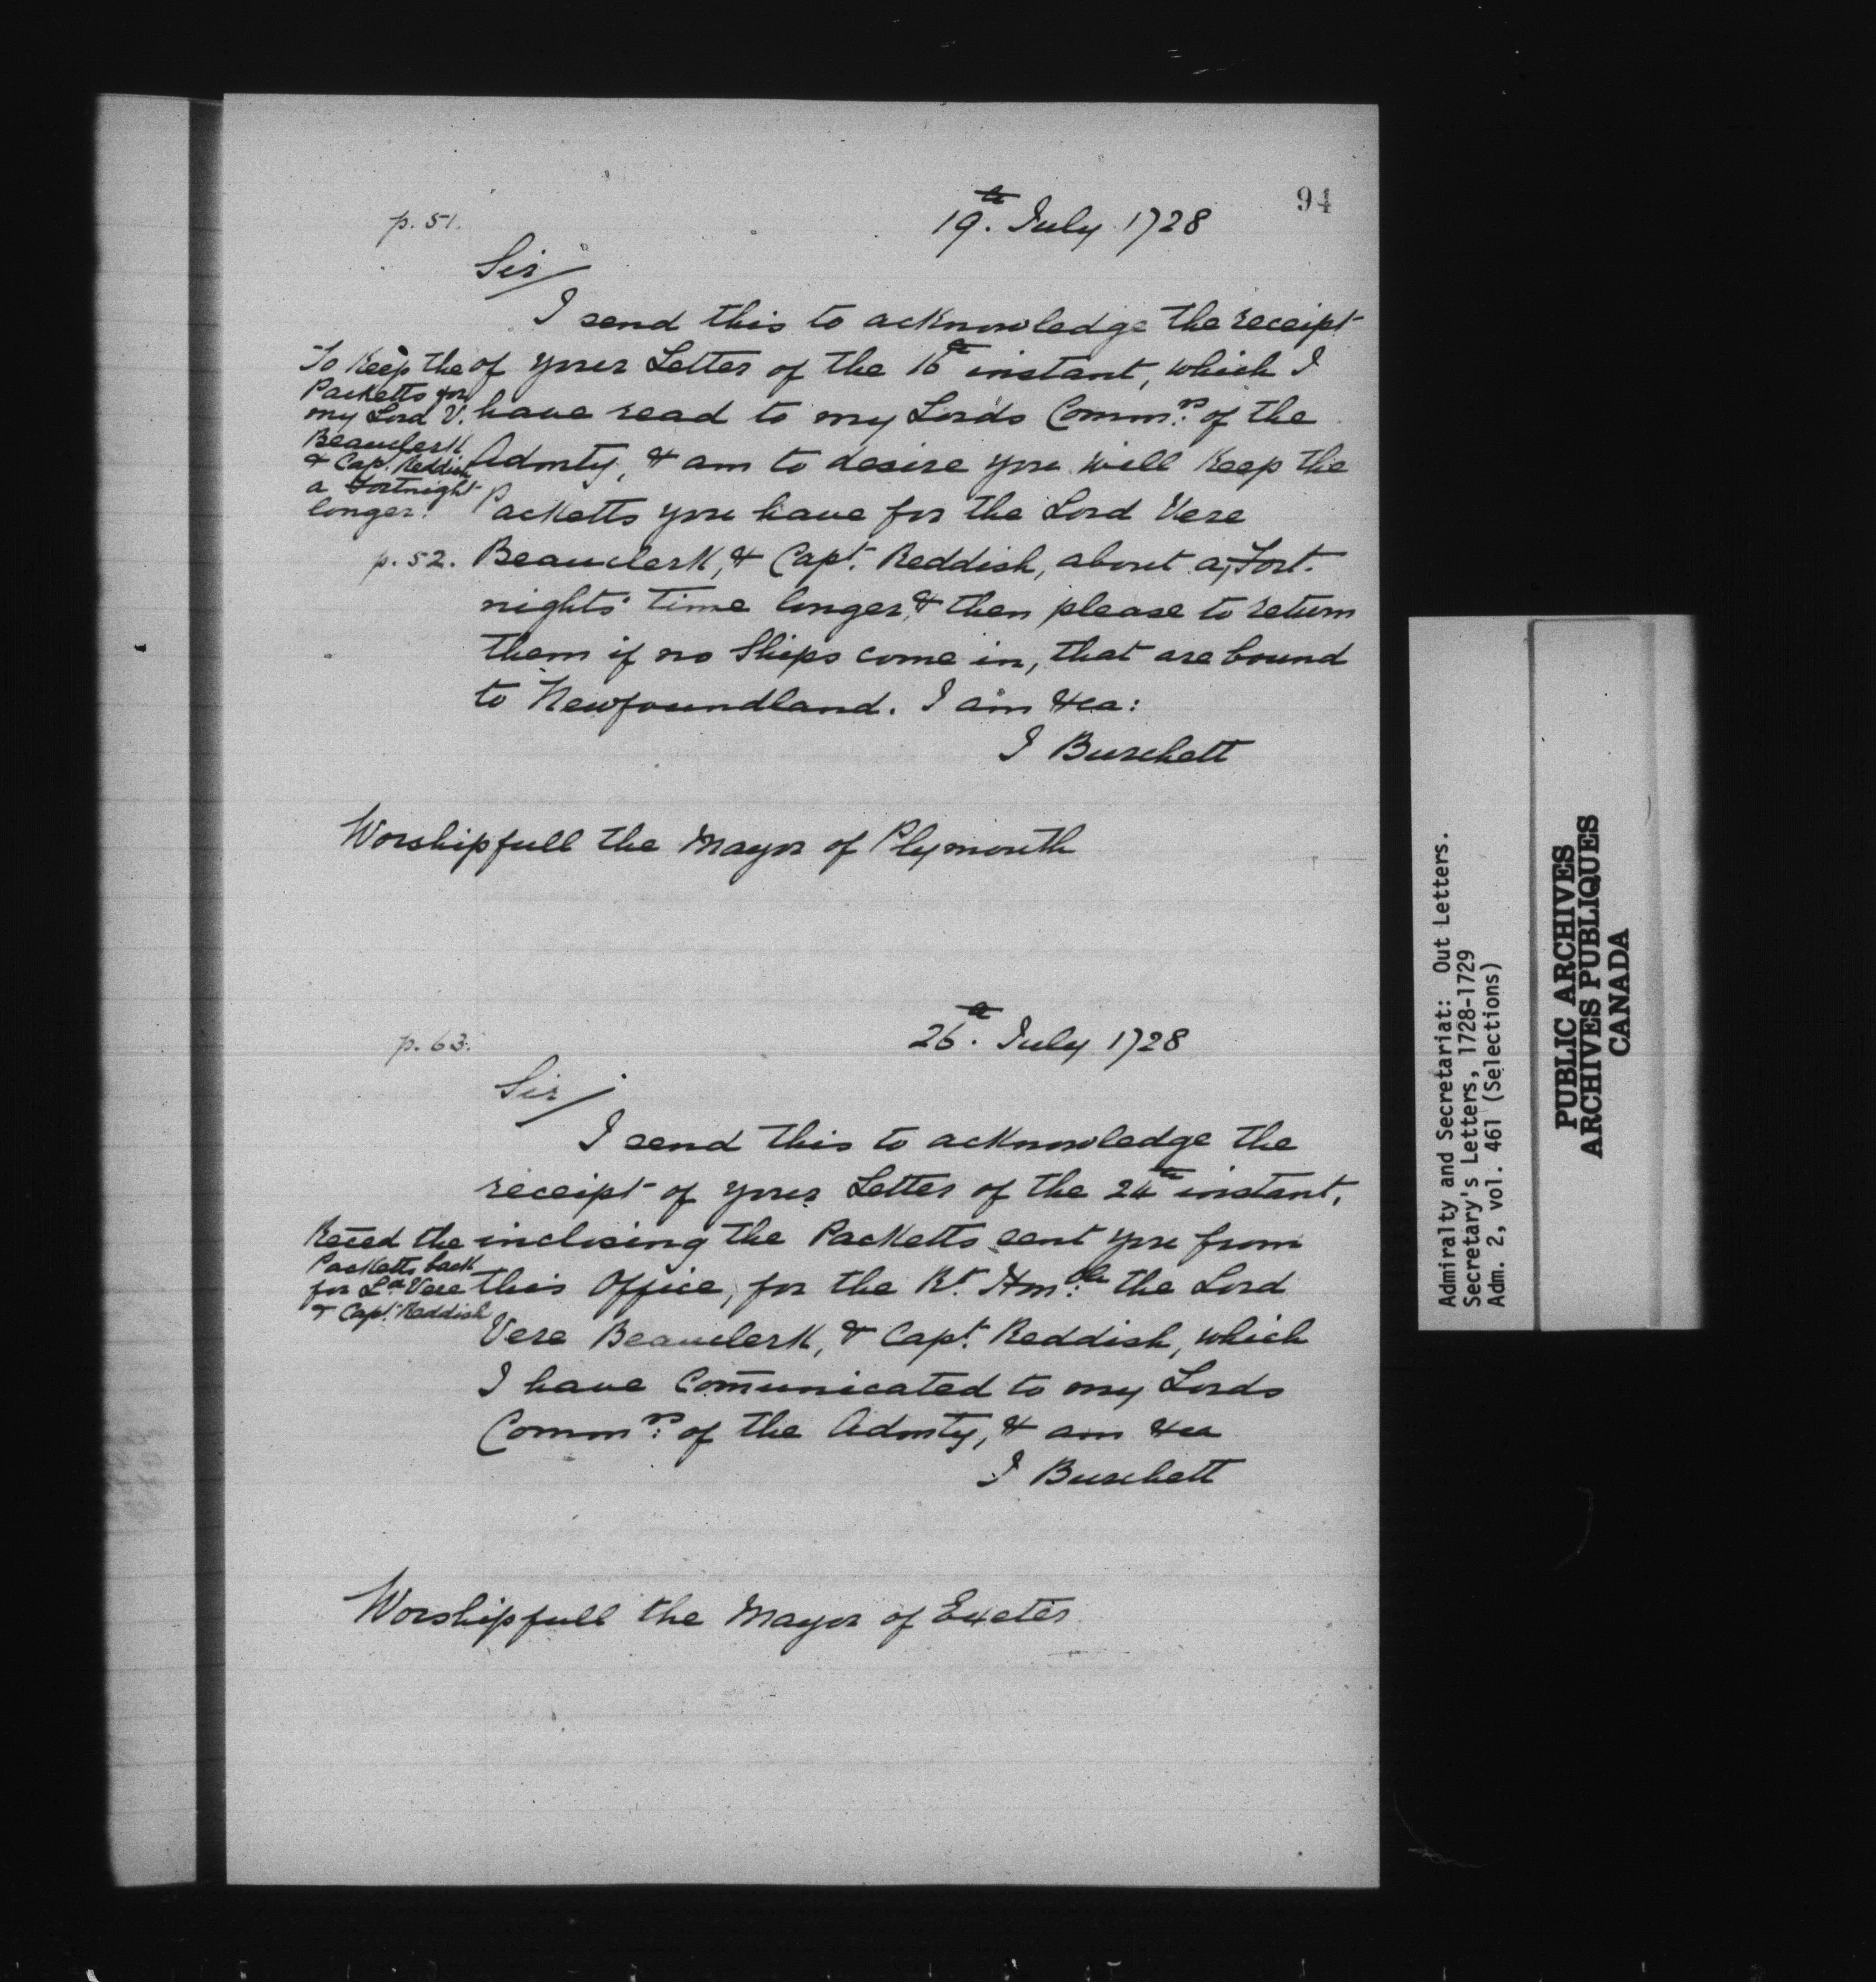 94
p. 51.
19th. July 1728
Sir/
I send this to acknowledge the receipt
of your Letter of the 16th instant, which I
have read to my Lords Commrs. of the
Admty, & am to desire you will keep the
Packetts you have for the Lord Vere
p. 52. Beauclerk, & Capt. Reddish, about a Fort-
nights time longer, & then please to return
them if no Ships come in, that are bound
to Newfoundland. I am &ca:
J Burchett
To keep the
Packetts for
my Lord V.
Beauclerk
& Cap. Reddish
a Fortnight
longer.
Worshipfull the Mayor of Plymouth
p. 63.
26th. July 1728
Sir/
I send this to acknowledge the
receipt of your Letter of the 24th instant,
inclosing the Packetts sent you from
this Office, for the Rt. Honble: the Lord
Vere Beauclerk, & Capt. Reddish, which
I have Com̄unicated to my Lords
Commrs: of the Admty, & am &ca
J Burchett
Reced the
Packetts back
for Ld Vere
& Capt. Reddish
Worshipfull the Mayor of Exeter
Admiralty and Secretariat: Out Letters.
Secretary's Letters, 1728-1729
Adm. 2, vol. 461 (Selections)
PUBLIC ARCHIVES
ARCHIVES PUBLIQUES
CANADA